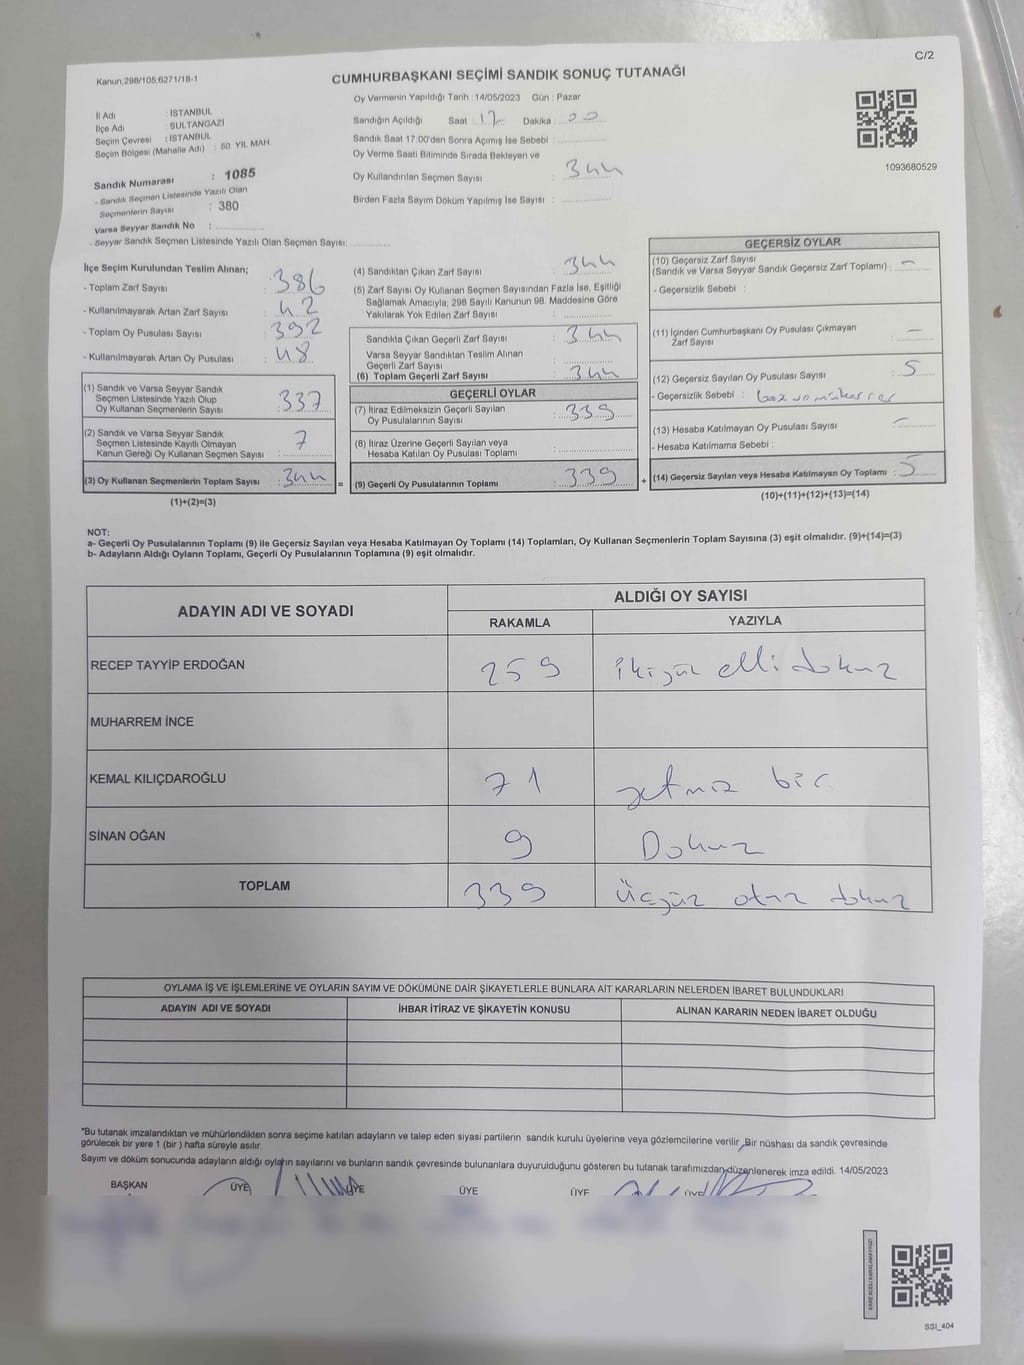 C/2
Kanun:298/105;6271/18-1
CUMHURBAŞKANI SEÇİMİ SANDIK SONUÇ TUTANAĞI
Oy Vermenin Yapıldığı Tarih : 14/05/2023 Gün : Pazar
İl Adı : İSTANBUL
İlçe Adı : SULTANGAZİ
Seçim Çevresi : İSTANBUL
Seçim Bölgesi (Mahalle Adı) : 50. YIL MAH.
Sandığın Açıldığı Saat : 17 Dakika : 00
Sandık Saat 17:00'den Sonra Açımış İse Sebebi :
Oy Verme Saati Bitiminde Sırada Bekleyen ve
Oy Kullandırılan Seçmen Sayısı : 344
Birden Fazla Sayım Döküm Yapılmış İse Sayısı :
1093680529
Sandık Numarası : 1085
- Sandık Seçmen Listesinde Yazılı Olan
Seçmenlerin Sayısı : 380
Varsa Seyyar Sandık No :
- Seyyar Sandık Seçmen Listesinde Yazılı Olan Seçmen Sayısı:
İlçe Seçim Kurulundan Teslim Alınan;
- Toplam Zarf Sayısı : 386
- Kullanılmayarak Artan Zarf Sayısı : 42
- Toplam Oy Pusulası Sayısı : 392
- Kullanılmayarak Artan Oy Pusulası : 48
(1) Sandık ve Varsa Seyyar Sandık
Seçmen Listesinde Yazılı Olup
Oy Kullanan Seçmenlerin Sayısı : 337
(2) Sandık ve Varsa Seyyar Sandık
Seçmen Listesinde Kayıtlı Olmayan
Kanun Gereği Oy Kullanan Seçmen Sayısı : 7
(3) Oy Kullanan Seçmenlerin Toplam Sayısı : 344 =
(1)+(2)=(3)
(4) Sandıktan Çıkan Zarf Sayısı : 344
(5) Zarf Sayısı Oy Kullanan Seçmen Sayısından Fazla İse, Eşitliği
Sağlamak Amacıyla, 298 Sayılı Kanunun 98. Maddesine Göre
Yakılarak Yok Edilen Zarf Sayısı :
Sandıkta Çıkan Geçerli Zarf Sayısı : 344
Varsa Seyyar Sandıktan Teslim Alınan
Geçerli Zarf Sayısı :
(6) Toplam Geçerli Zarf Sayısı : 344
GEÇERLİ OYLAR
(7) İtiraz Edilmeksizin Geçerli Sayılan
Oy Pusulalarının Sayısı : 339
(8) İtiraz Üzerine Geçerli Sayılan veya
Hesaba Katılan Oy Pusulası Toplamı :
(9) Geçerli Oy Pusulalarının Toplamı : 339 +
GEÇERSİZ OYLAR
(10) Geçersiz Zarf Sayısı
(Sandık ve Varsa Seyyar Sandık Geçersiz Zarf Toplamı) : -
- Geçersizlik Sebebi :
(11) İçinden Cumhurbaşkanı Oy Pusulası Çıkmayan
Zarf Sayısı : -
(12) Geçersiz Sayılan Oy Pusulası Sayısı : 5
- Geçersizlik Sebebi :
(13) Hesaba Katılmayan Oy Pusulası Sayısı : -
- Hesaba Katılmama Sebebi :
(14) Geçersiz Sayılan veya Hesaba Katılmayan Oy Toplamı : 5
(10)+(11)+(12)+(13)=(14)
NOT:
a- Geçerli Oy Pusulalarının Toplamı (9) ile Geçersiz Sayılan veya Hesaba Katılmayan Oy Toplamı (14) Toplamları, Oy Kullanan Seçmenlerin Toplam Sayısına (3) eşit olmalıdır. (9)+(14)=(3)
b- Adayların Aldığı Oyların Toplamı, Geçerli Oy Pusulalarının Toplamına (9) eşit olmalıdır.
ADAYIN ADI VE SOYADI
ALDIĞI OY SAYISI
RAKAMLA YAZIYLA
RECEP TAYYİP ERDOĞAN 259 ikiyüz elli dokuz
MUHARREM İNCE
KEMAL KILIÇDAROĞLU 71 yetmiz bir
SİNAN OĞAN 9 Dokuz
TOPLAM 339 Üçyüz otuz dokuz
OYLAMA İŞ VE İŞLEMLERİNE VE OYLARIN SAYIM VE DÖKÜMÜNE DAİR ŞİKAYETLERLE BUNLARA AİT KARARLARIN NELERDEN İBARET BULUNDUKLARI
ADAYIN ADI VE SOYADI İHBAR İTİRAZ VE ŞİKAYETİN KONUSU ALINAN KARARIN NEDEN İBARET OLDUĞU
"Bu tutanak imzalandıktan ve mühürlendikten sonra seçime katılan adayların ve talep eden siyasi partilerin sandık kurulu üyelerine veya gözlemcilerine verilir. Bir nüshası da sandık çevresinde
görülecek bir yere 1 (bir ) hafta süreyle asılır.
Sayım ve döküm sonucunda adayların aldığı oyların sayılarını ve bunların sandık çevresinde bulunanlara duyurulduğunu gösteren bu tutanak tarafımızdan düzenlenerek imza edildi. 14/05/2023
BAŞKAN ÜYE ÜYE ÜYE ÜYE ÜYE
SSI_404